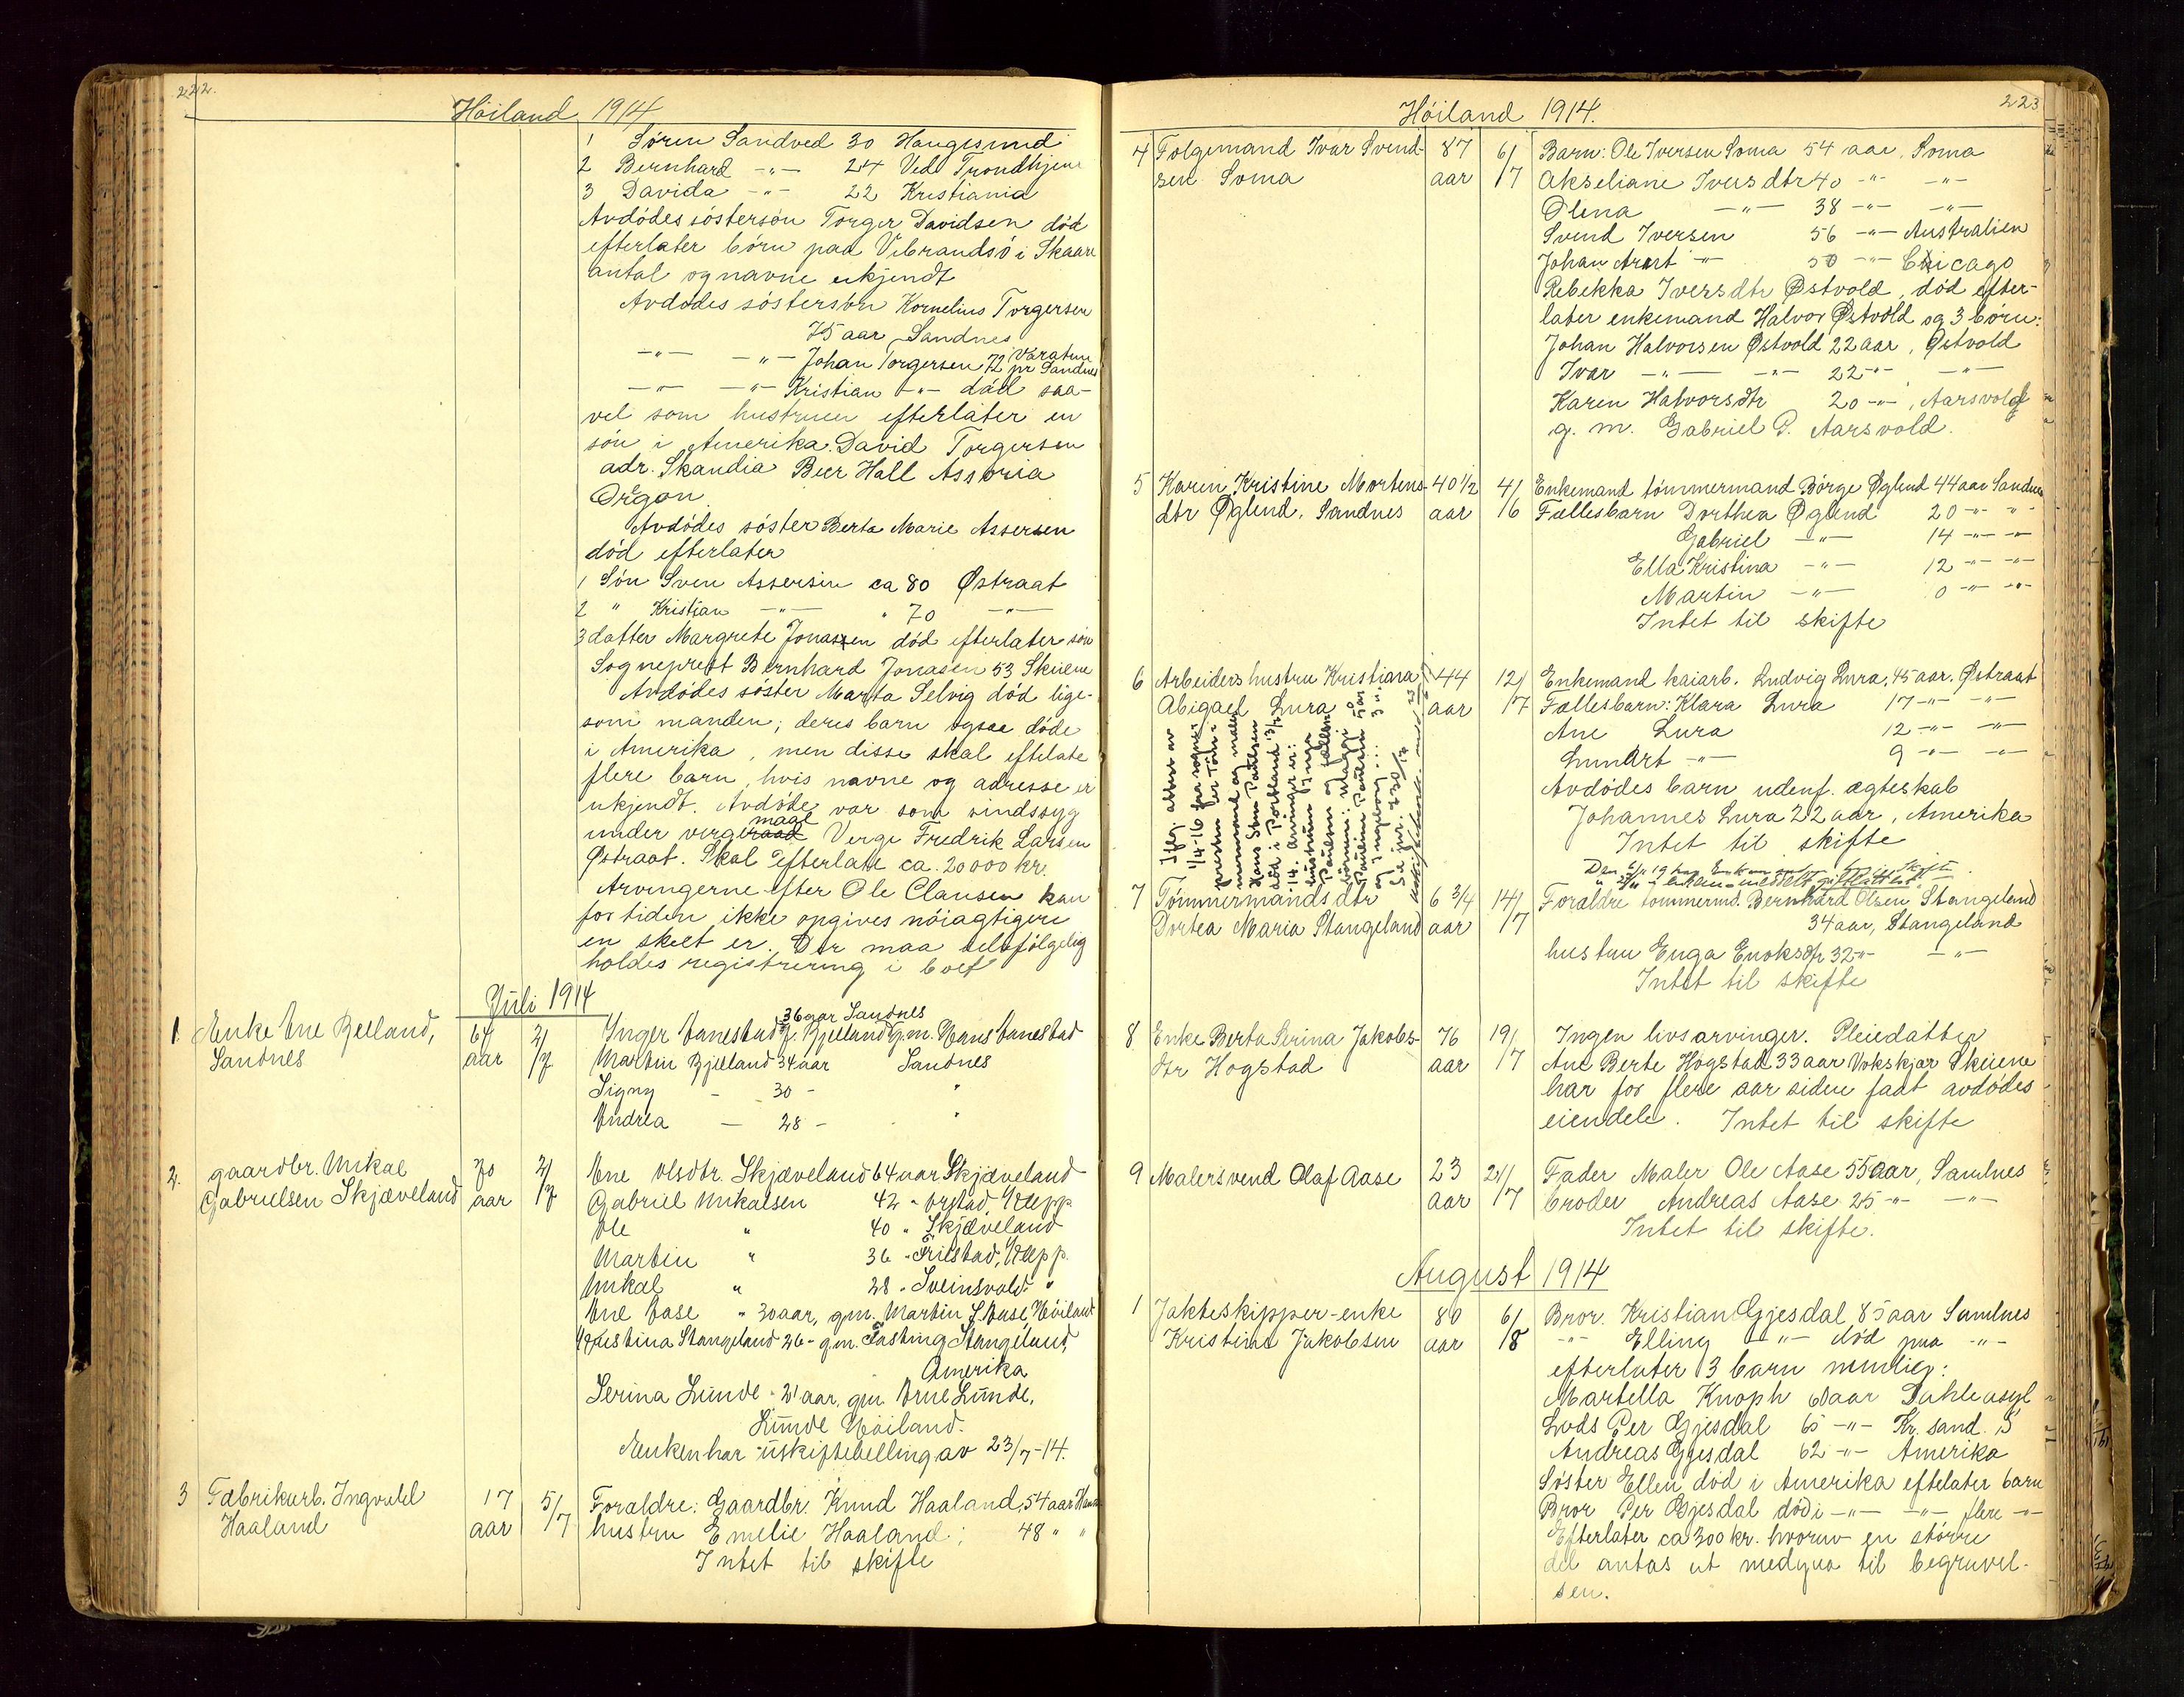 222.
Höiland 1914
1 Sören Sandved 30 Haugesund
2 Bernhard -"- 24 Ved Trondhjem
3 Davida -"- 22 Kristiania
Avdödes söstersön Torger Davidsen död
efterlater börn paa Vibrandsö i Skaare
antal og navne ukjendt
Avdödes söstersön Kornelius Torgersen
75 aar Sandnes
-"- -"- Johan Torgersen 72 Varatun pr Sandnes
-"- -"- Kristian -"- död saa-
vel som hustruen efterlater en
sön i Amerika. David Torgersen
adr. Skandia Beer Hall Assoria
Oregon
Avdödes söster Berta Marie Assersen
död efterlater
1 Sön Sven Assersen ca 80 Østraat
2 " Kristian -"- " 70 -"-
3 datter Margrete Jonassen död efterlater sön
Sogneprest Bernhard Jonasen 53 Skeiene
Avdödes söster Marta Selvig död lige-
som manden; deres barn ogsaa döde
i Amerika, men disse skal eftelate
flere barn, hvis navne og adresse er
ukjendt. Avdöde var som sindssyg
under vergeraad maal Verge Fredrik Larsen
Østraat. Skal efterlate ca. 20000 kr.
Arvingerne efter Ole Clausen kan
for tiden ikke opgives nöiagtigere
en skeet er. Der maa selvfölgelig
holdes registrering i boet
Juli 1914
1. Enke Ane Bjelland, 64 2/ Inger Vanestad f. Bjelland 36 aar Sandnes g.m. Hans Vanestad
Sandnes aar /7 Martin Bjelland 34 aar Sandnes
Signy - 30 - "
Andrea - 28 - "
2. gaardbr. Mikal 70 2/ Ane Olsdtr. Skjæveland 64 aar Skjæveland
Gabrielsen Skjæveland aar /7 Gabriel Mikalsen 42 - Orstad, Klepp
Ole " 40 " Skjæveland
Martin " 36 - Friestad, Klepp.
Mikal " 28 - Sveinsvold "
Ane Aase " 30 aar, gm. Martin J. Aase, Höiland
Kristina Stangeland 26 - g.m. Tasting Stangeland,
Amerika
Serina Lunde - 21 aar, gm. Arne Lunde,
Lunde Höiland.
Enken har uskiftebevilling av 23/7-14.
3 Fabrikarb. Ingvald 17 5/ Foraldre: Gaardbr. Knud Haaland, 54 aar
Haaland aar /7 hustru Emelie Haaland; 48 " "
Intet til skifte
223
Höiland 1914.
4 Folgemand Ivar Svend- 87 6/ Barn: Ole Iversen Soma 54 aar, Soma
sen Soma aar /7 Akseliane Iversdtr 40 -"- -"-
Olena -"- 38 -"- -"-
Svend Iversen 56 -"- Australien
Johan Arnt -"- 50 -"- Chicago
Rebekka Iversdtr Østvold, död efter-
later enkemand Halvor Østvold og 3 börn:
Johan Halvorsen Østvold 22 aar, Østvold
Ivar -"- -"- 22 -"- -"-
Karen Halvorsdtr 20 -"-, Aarsvold
g. m. Gabriel P. Aarsvold.
5 Karen Kristine Mortens- 40 1/2 4/ Enkemand tömmermand Börge Øglend 44 aar Sandnes
dtr Øglend, Sandnes aar /6 Fællesbarn Dorthea Øglend 20 -"- "-
Gabriel -"- 14 -"- -"-
Ella Kristina -"- 12 -"- -"-
Martin -"- 0 -"- -"-
Intet til skifte
6 Arbeiders hustru Kristiana 44 12/ Enkemand kaiarb. Ludvig Lura, 45 aar. Østraat
Abigael Lura aar /7 Fællesbarn: Klara Lura 17 -"- -"-
Ane Lura 12 -"- -"-
Lunart -"- 9 -"- -"-
Avdödes barn udenf. ægteskab
Johannes Lura 22 aar, Amerika
Intet til skifte
Ifölg. attest av
1/4-16 fra sogne-
7 Tömmermands dtr 6 3/4 14/ Foraldre tömmermd. Bernhard Olsen Stangeland
Dortea Maria Stangeland aar /7 34 aar, Stangeland
hustru Enga Enoksdtr 32 -"- -"-
Intet til skifte
8 Enke Berta Serina Jakobs- 76 19/ Ingen livsarvinger. Pleiedatter
dtr Hogstad aar /7 Ane Berte Hogstad 33 aar Vokskjær Skeiene
har for flere aar siden faat avdödes
eiendele. Intet til skifte
9 Malersvend Olaf Aase 23 21/ Fader Maler Ole Aase 55 aar, Sandnes
aar /7 broder Andreas Aase 25 -"- -"-
Intet til skifte.
August 1914
1 Jakteskipper-enke 80 6/ Bror. Kristian Gjesdal 85 aar Sandnes
Kristine Jakobsen aar /8 -"- Elling -"- död paa -"-
efterlater 3 barn nemlig:
Martella Knoph 60 aar Dahle asyl
Lods Per Gjesdal 65 -"- Kr. sand. S
Andreas Gjesdal 62 -"- Amerika
Söster Ellen död i Amerika eftelater barn
Bror Per Gjesdal död i -"- -"- flere -"-
Efterlater ca 300 kr. hvorav en större
del antas at medgaa til begravel-
sen.